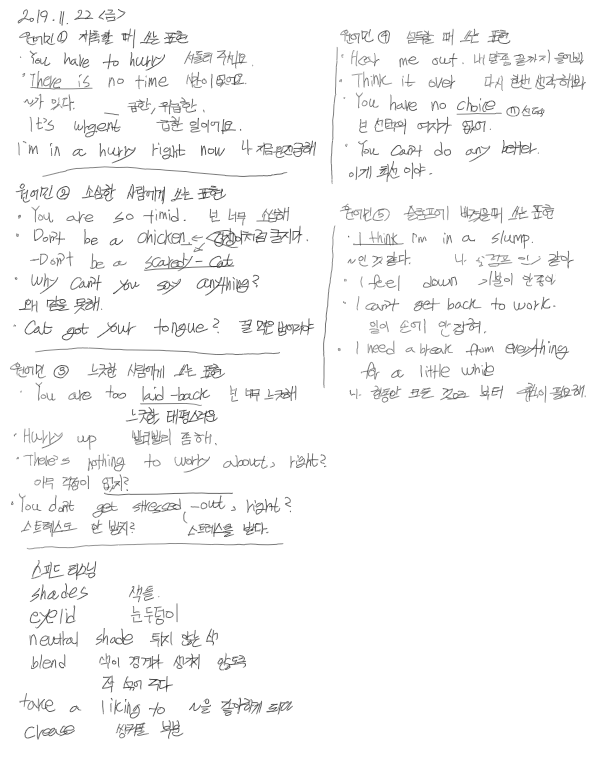 2019. 11. 22 <금>
원어민 ① 재촉할 때 쓰는 표현
· You have to hurry 서둘러 주세요.
· There is no time 시간이 없어요.
~가 있다. 급한, 위급한.
It's urgent 급한 일이에요.
I'm in a hurry right now 나 지금 급해
원어민 ② 소심한 사람에게 쓰는 표현
· You are so timid. 넌 너무 소심해
· Don't be a chicken 겁쟁이처럼 굴지마.
- Don't be a scaredy-cat
· Why can't you say anything?
왜 말을 못해.
· Cat got your tongue? 꿀 먹은 벙어리야
원어민 ③ 느긋한 사람에게 쓰는 표현
· You are too laid-back 넌 너무 느긋해
느긋한, 태평스러운
· Hurry up 빨리빨리 좀 해.
· There's nothing to worry about, right?
아무 걱정이 없지?
· You don't get stressed-out, right?
스트레스도 안 받지? 스트레스를 받다.
스피드 리스닝
shades 색들.
eyelid 눈두덩이
neutral shade 튀지 않는 색
blend 색이 경계가 생기지 않도록
섞어 주다
take a liking to ~을 좋아하게 되다
crease 쌍커풀 부분
원어민 ④ 설득할 때 쓰는 표현
· Hear me out. 내 말 좀 끝까지 들어봐
· Think it over 다시 한번 생각해봐
· You have no choice (n) 선택
넌 선택의 여지가 없어.
· You can't do any better.
이게 최선이야.
원어민 ⑤ 슬럼프에 빠졌을 때 쓰는 표현
· I think I'm in a slump.
~인 것 같다. 나 슬럼프인 것 같아
· I feel down 기분이 안 좋아
· I can't get back to work.
일이 손에 안 잡혀.
· I need a break from everything
for a little while
나 한동안 모든 것으로 부터 휴식이 필요해.